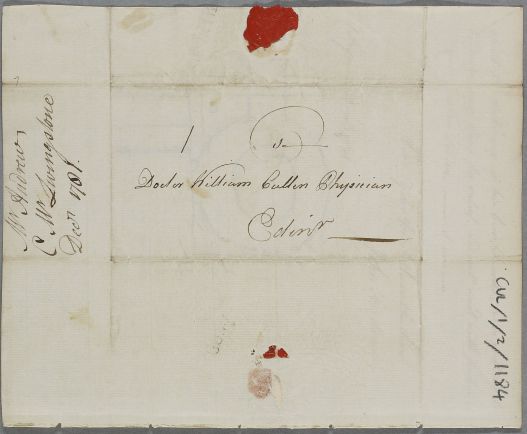 Mr Andrew
C Mr Livingstone
Decr 1781.
1
Doctor William Cullen Physician
Edinr
CUL/1/2/1184